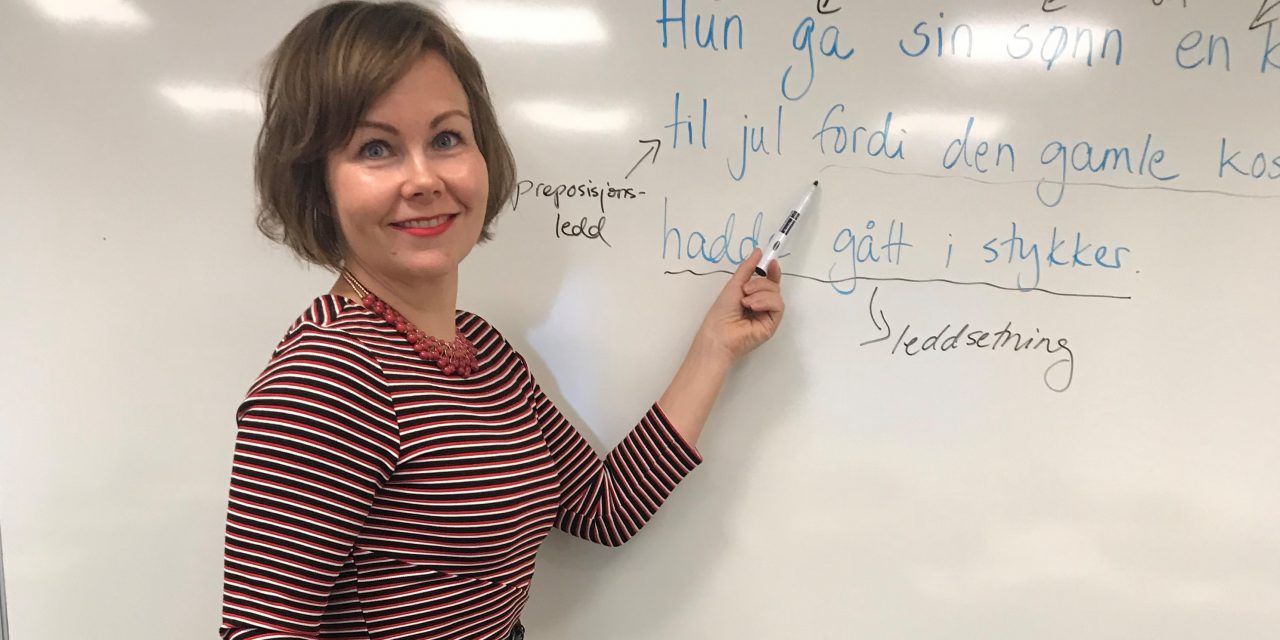 Hun ga sin sønn en k
til jul fordi den gamle kos
preposisjons-
ledd
hadde gått i stykker.
leddsetning